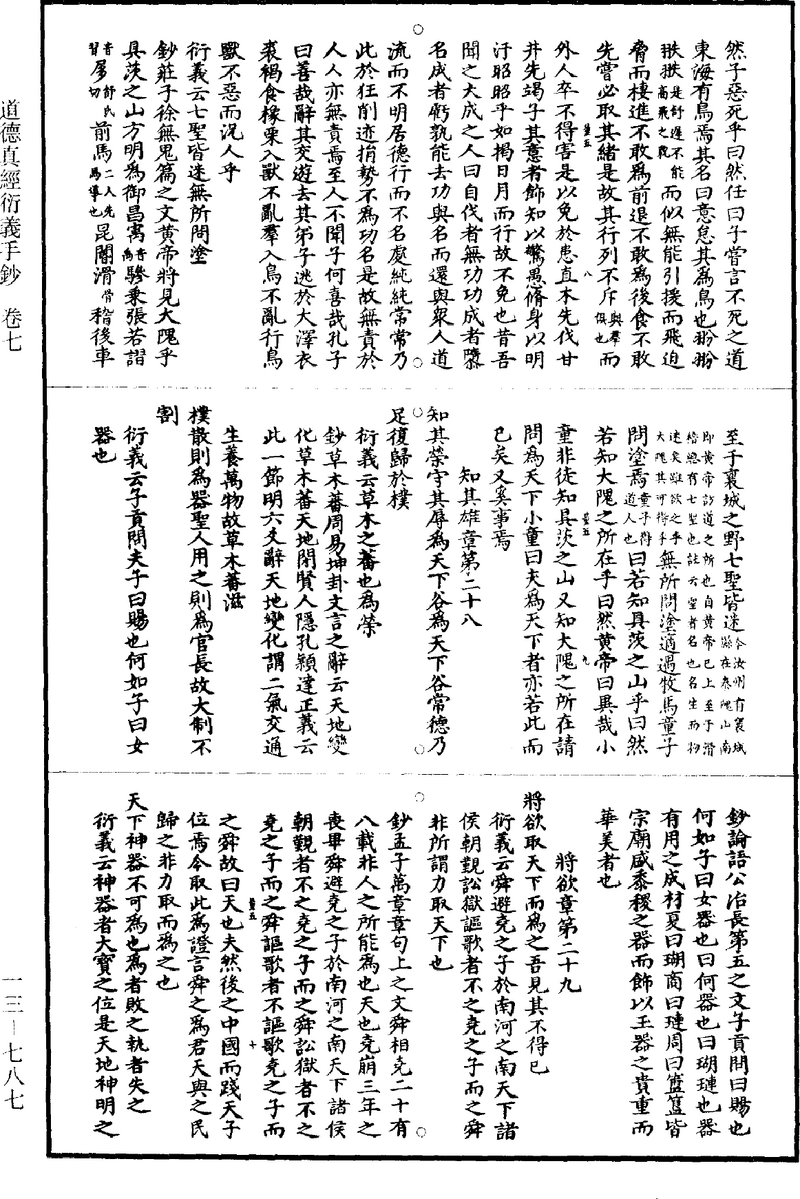 然子惡死乎曰然任曰子嘗言不死之道
東海有鳥焉其名曰意怠其為鳥也翂翂
翐翐是舒遲不能高飛之貌而似無能引援而飛迫
脅而棲進不敢為前退不敢為後食不敢
先嘗必取其緒是故其行列不斥與羣俱也而
外人卒不得害是以免於患直木先伐甘
井先竭子其意者飾知以驚愚脩身以明
汙昭昭乎如揭日月而行故不免也昔吾
聞之大成之人曰自伐者無功功成者墮
名成者虧孰能去功與名而還與衆人道
流而不明居德行而不名處純純常常乃
此於狂削迹捐勢不為功名是故無責於
人人亦無責焉至人不聞子何喜哉孔子
曰善哉辭其交遊去其弟子逃於大澤衣
裘褐食橡栗入獸不亂羣入鳥不亂行鳥
獸不惡而況人乎
衍義云七聖皆迷無所問塗
鈔莊子徐無鬼篇之文黃帝將見大隗乎
具茨之山方明為御昌㝢音禹驂乘張若謵
音習㚐舒氏切前馬二人先馬導也昆閽滑音骨稽後車
至于襄城之野七聖皆迷今汝州有襄城縣在泰隗山南
即黃帝訪道之所也自黃帝已上至于滑稽總有七聖也註云聖者名也名生而物
迷矣雖欲之乎大隗其可得乎無所問塗適遇牧馬童子
問塗焉童子得道人也曰若知具茨之山乎曰然
若知大隗之所在乎曰然黃帝曰異哉小
童非徒知具茨之山又知大隗之所在請
問為天下小童曰夫為天下者亦若此而
已矣又奚事焉
知其雄章第二十八
知其榮守其辱為天下谷為天下谷常德乃
足復歸於樸
衍義云草木之蕃也為榮
鈔草木蕃周易坤卦文言之辭云天地變
化草木蕃天地閉賢人隱孔穎達正義云
此一節明六爻辭天地變化謂二氣交通
生養萬物故草木蕃滋
樸散則為器聖人用之則為官長故大制不
割
衍義云子貢問夫子曰賜也何如子曰女
器也
鈔論語公冶長第五之文子貢問曰賜也
何如子曰女器也曰何器也曰瑚璉也器
有用之成材夏曰瑚商曰璉周曰簠簋皆
宗廟盛黍稷之器而飾以玉器之貴重而
華美者也
將欲章第二十九
將欲取天下而為之吾見其不得已
衍義云舜避堯之子於南河之南天下諸
侯朝覲訟獄謳歌者不之堯之子而之舜
非所謂力取天下也
鈔孟子萬章章句上之文舜相堯二十有
八載非人之所能為也天也堯崩三年之
喪畢舜避堯之子於南河之南天下諸侯
朝覲者不之堯之子而之舜訟獄者不之
堯之子而之舜謳歌者不謳歌堯之子而
之舜故曰天也夫然後之中國而踐天子
位焉今取此為證言舜之為君天與之民
歸之非力取而為之也
天下神器不可為也為者敗之執者失之
衍義云神器者大寶之位是天地神明之
道德真經衍義手鈔 卷七
一三—七八七